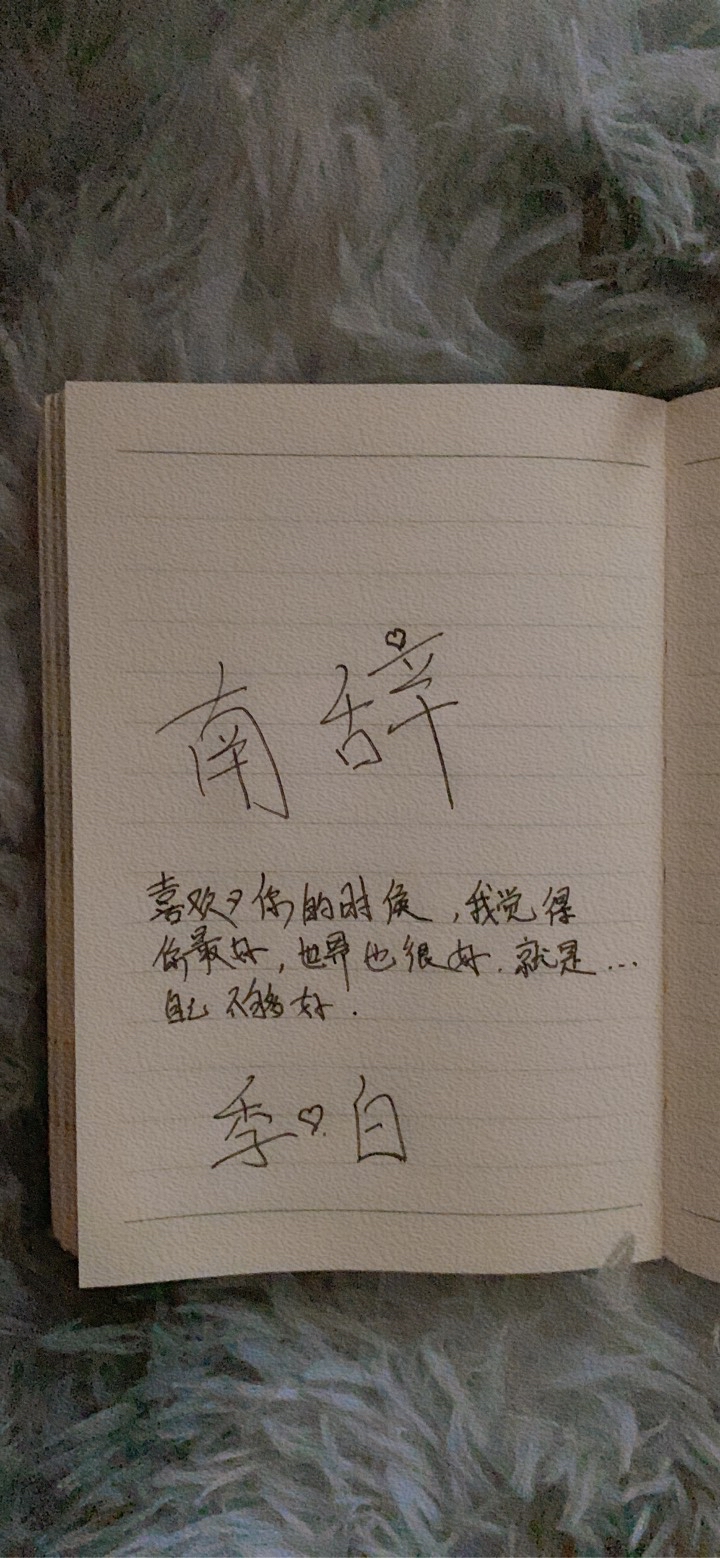 南辞
喜欢夕你的时候,我觉得
你最好,世界也很好.就是...
自己不够好.
季♡白